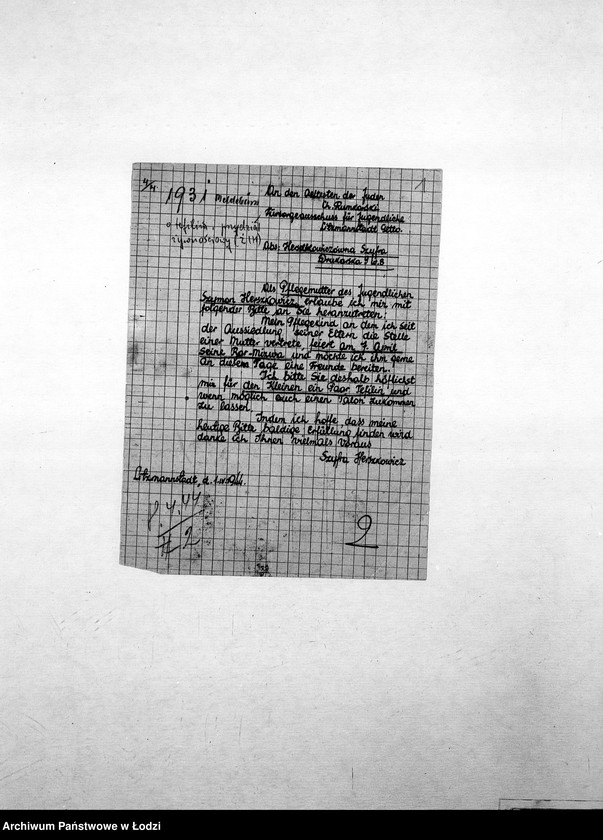 4/4
1931 Meldebüro
o tefilin i przydział
żywnościowy (ŻIH)
1
An den Aeltesten der Juden
Ch. Rumkowski
Fürsorgeausschuss für Jugendliche
Litzmannstadt Getto.
Abs: Herszkowiczówna Szyfra
Drukarska 9 W.8
Als Pflegemutter des Jugendlichen
Szymon Herszkowicz, erlaube ich mir mit
folgender Bitte an Sie heranzutreten:
Mein Pflegekind an dem ich seit
der Aussiedlung seiner Eltern die Stelle
einer Mutter vertrete feiert am 7. April
seine Bar-Mizwa und möchte ich ihm gerne
an diesem Tage eine Freunde bereiten.
Ich bitte Sie deshalb höflichst
mir für den Kleinen ein Paar Tefilin und
wenn möglich auch einen Talon zukommen
zu lassen.
Indem ich hoffe, dass meine
heutige Bitte baldige Erfüllung finden wird
danke ich Ihnen vielmals voraus
Szyfra Herszkowicz
Litzmannstadt, d. 1.IV.1944.
8.4.44
# 2
2
Archiwum Państwowe w Łodzi